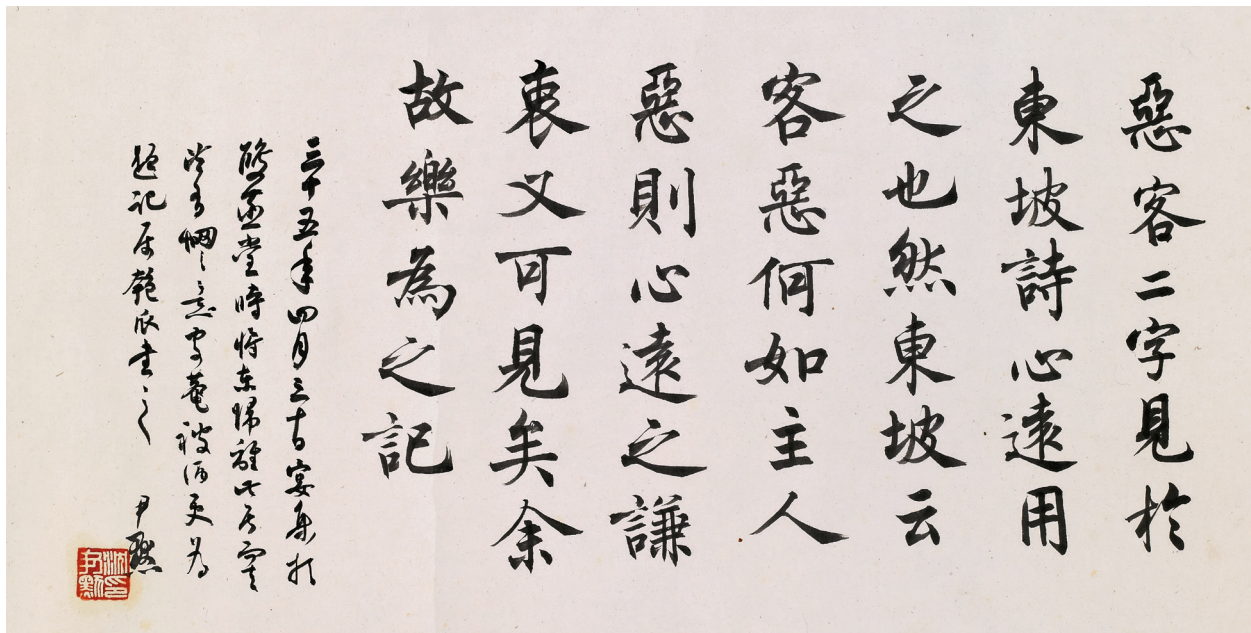 惡客二字見於
東坡詩心遠用
之也然東坡云
客惡何如主人
惡則心遠之謙
衷又可見矣余
故樂為之記
三十五年四月三十日宴集於
鑒齋堂時將東歸離此居室
皆有惘惘意安菴被酒更為
題記屬匏瓜書之 尹默
沈尹默印